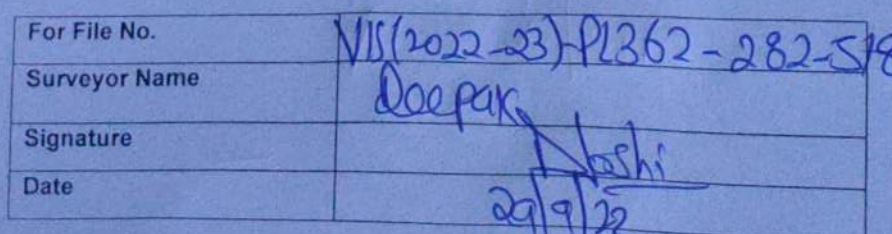 For File No. VIS(2022-23)-PL362-282-518
Surveyor Name Deepak
Signature DJoshi
Date 29/9/22